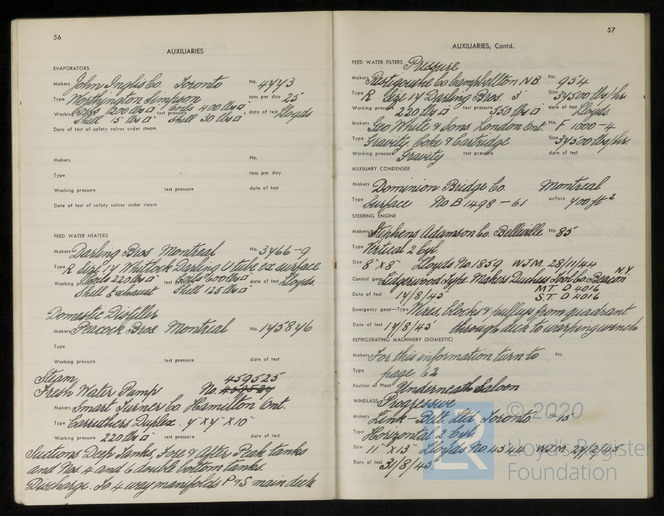 56
AUXILIARIES
EVAPORATORS
Makers John Inglis Co Toronto No. 4443
Type Worthington Simpson tons per day 25
Working pressure Coils 200 lbs □" test pressure Coils 400 lbs □" date of test Lloyds
Shell 15 lbs □" Shell 30 lbs □"
Date of test of safety valves under steam
Makers No.
Type tons per day
Working pressure test pressure date of test
Date of test of safety valves under steam
FEED WATER HEATERS
Makers Darling Bros Montreal No. 3466-9
Type R size 14 Whitlock Darling U tube surface
Working pressure Coils 220 lbs □" test pressure Coils 600 lbs □" date of test Lloyds
Shell Exhaust Shell 125 lbs □"
Domestic Distiller
Makers Peacock Bros Montreal No. 145846
Type
Working pressure test pressure date of test
Steam 459525
Fresh Water Pump No.
Makers Smart Turner Co Hamilton Ont.
Type Carruthers Duplex. 4" x 4" x 10"
Working pressure 220 lbs □" test pressure date of test
Suctions Deep Tanks, Fore & After Peak tanks
and Nos 4 and 6 double bottom tanks.
Discharge To 4 way manifolds P & S main deck
57
AUXILIARIES, Contd.
FEED WATER FILTERS Pressure
Makers Restigouche Co Campbellton N.B. No. 954
Type R size 14 Darling Bros 3" Size 34500 lbs/hr
Working pressure 220 lbs □" test pressure 450 lbs □" date of test Lloyds
Makers Geo White & Sons London Ont. No. F 1000-4
Type Gravity Coke & Cartridge Size 34500 lbs/hr
Working pressure Gravity test pressure date of test
AUXILIARY CONDENSER
Makers Dominion Bridge Co. Montreal
Type Surface No B 1498-61 surface 400 ft²
STEERING ENGINE
Makers Stephens Adamson Co. Belleville No. 85
Type Vertical 2 Cyl.
Size 8" x 8" Lloyds No. 1859 W.J.M. 28/11/44
Control gear Edgerwood Type Makers Duchess Tool Co. Beacon N.Y.
M.T. D 4016
Date of test 14/8/45 S.T. D 4016
Emergency gear—Type Wires blocks & pulleys from quadrant
Date of test 14/8/45 through deck to warping winch
REFRIGERATING MACHINERY (DOMESTIC)
Makers For this information turn to No.
Type page 62
Position of Plant Underneath Saloon
WINDLASS Progressive
Makers Link-Belt Ltd Toronto No. 15
Type Horizontal 2 Cyl
Size 11" x 13" Lloyds No. 4544 W.J.M. 24/2/45
Date of test 31/8/45
© 2020
Lloyd's Register
Foundation